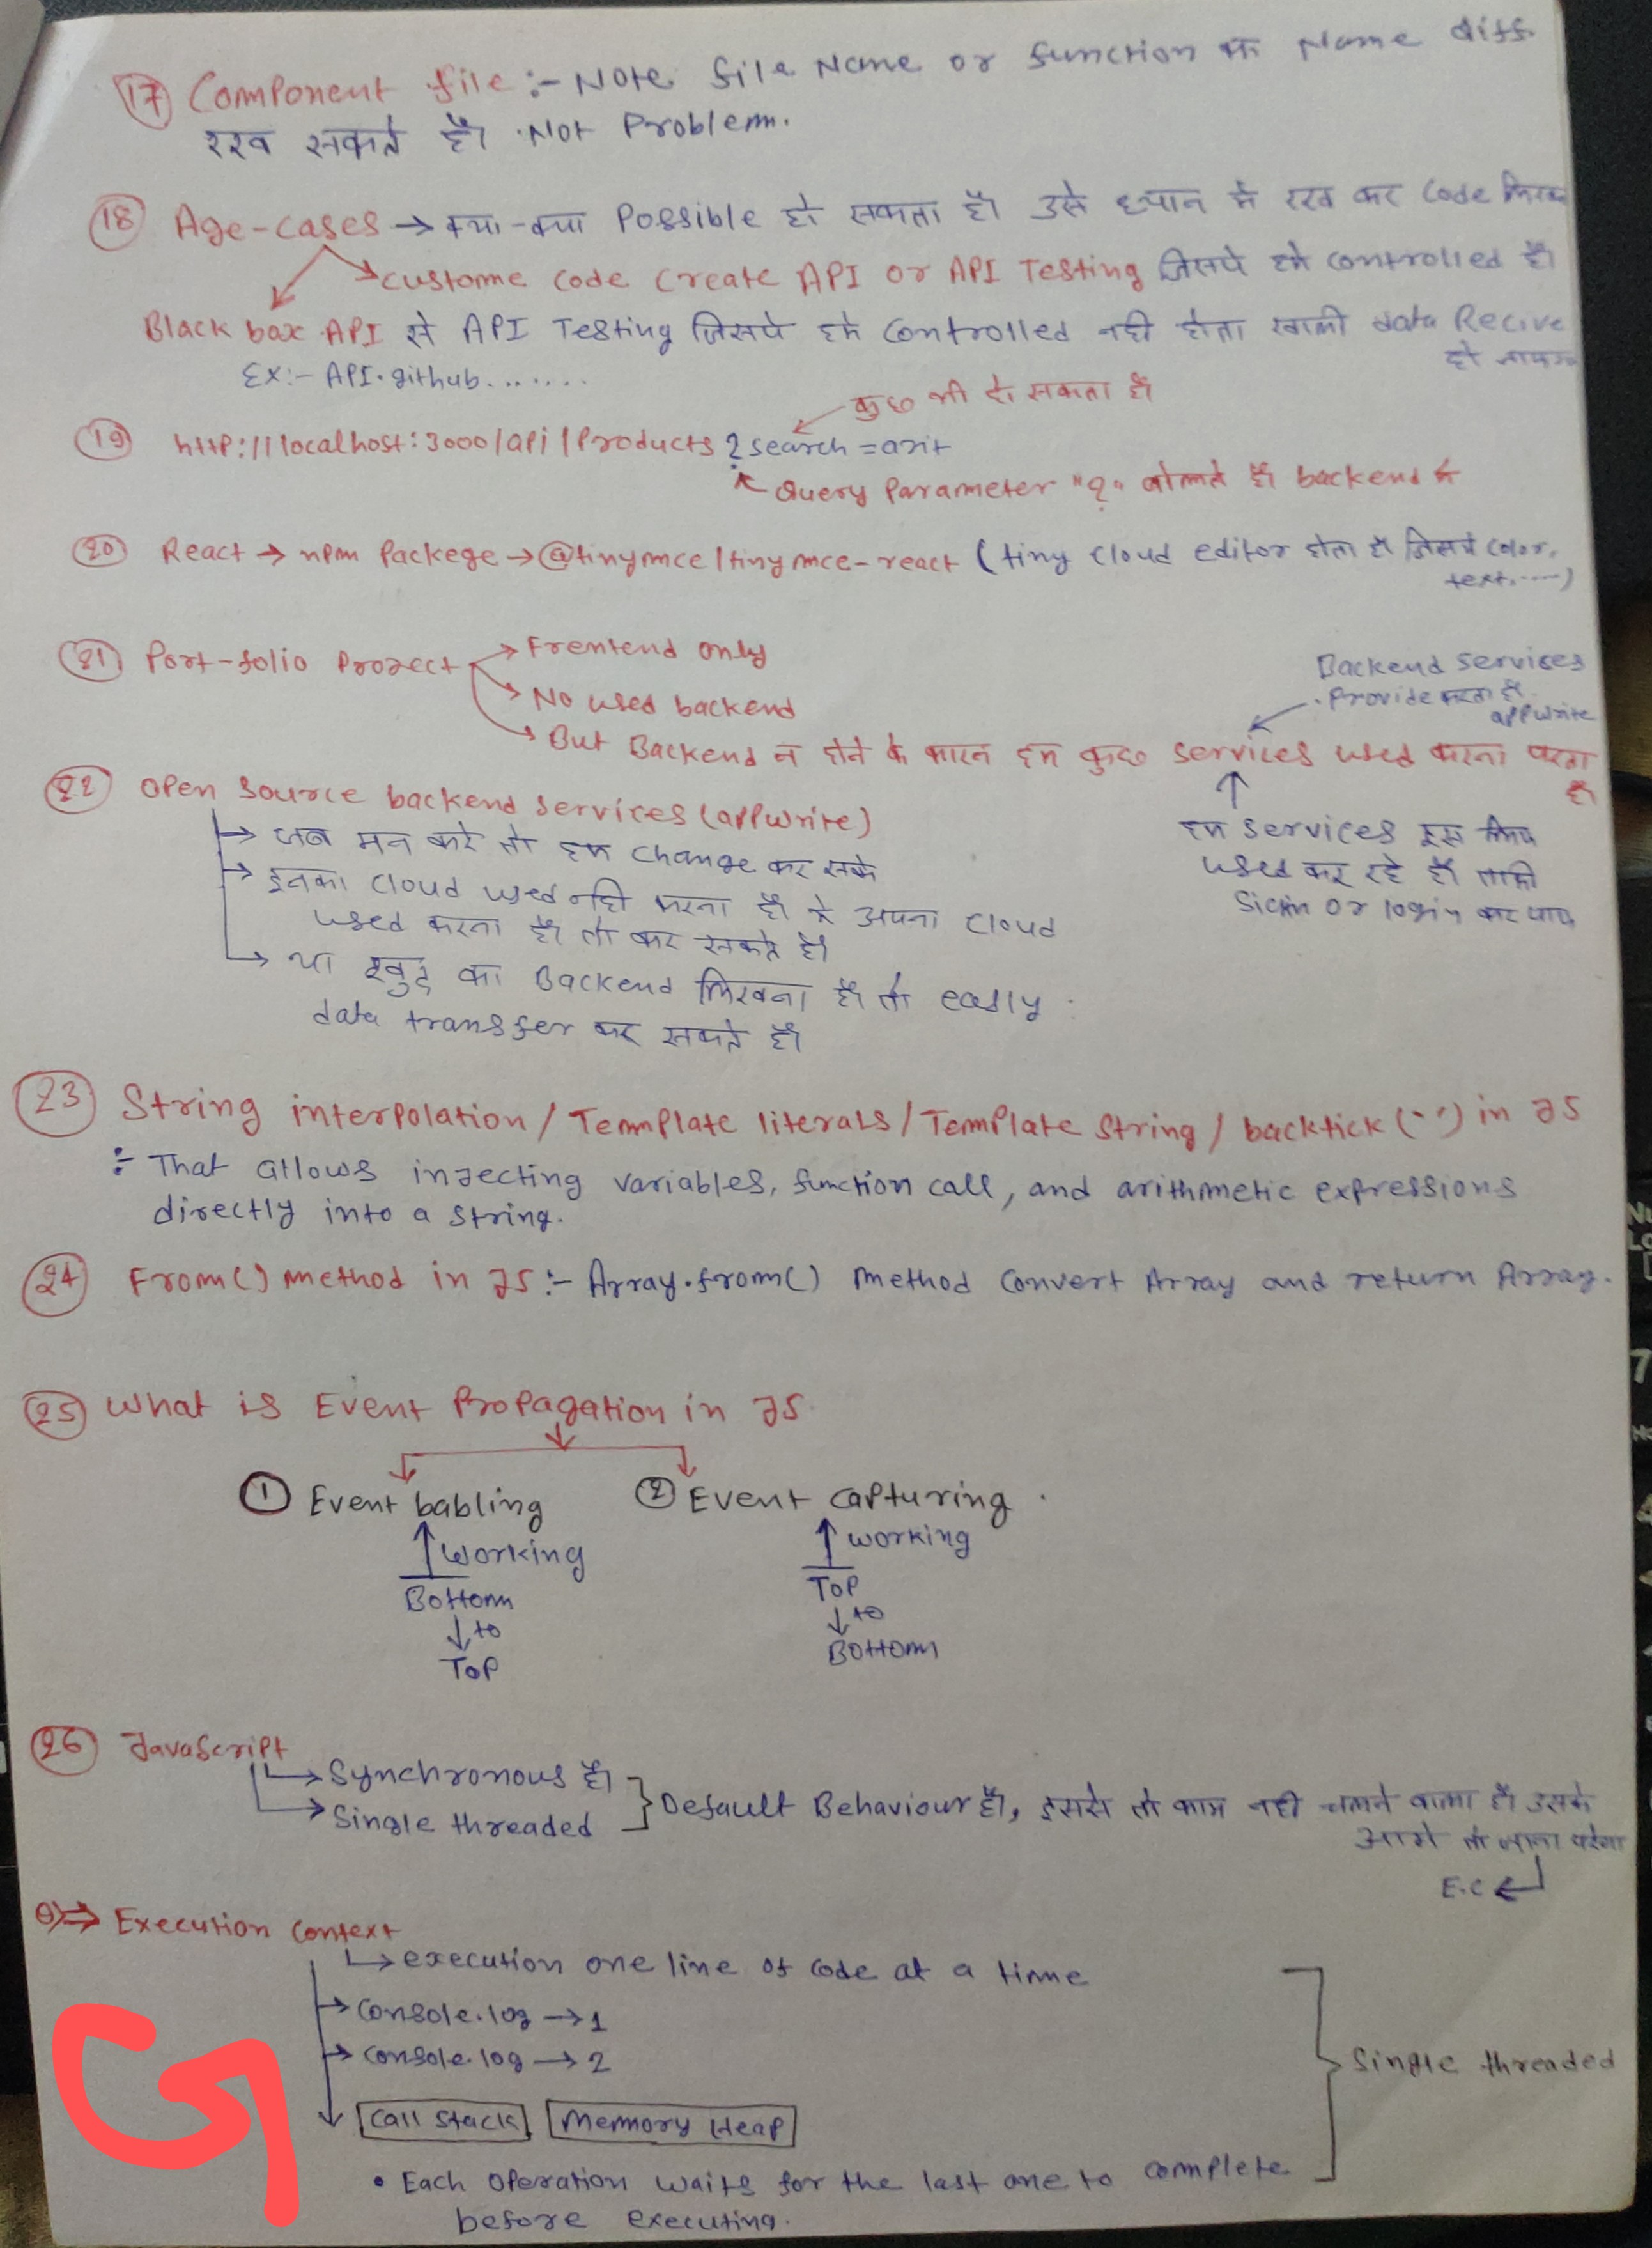 17 Component file :- Note file Name or function का Name diff.
रख सकते है। Not Problem.
18 Age-cases → क्या-क्या Possible हो सकता है। उसे ध्यान मे रख कर Code
custome code create API or API Testing जिसपे हमे controlled है।
Black box API से API Testing जिसपे हमे controlled नही होता खाली data Recive
हो
Ex:- API.github.......
कुछ भी हो सकता है
19 http://localhost:3000/api/Products?search=arit
Query Parameter "?" बोलते है। backend मे
20 React → npm Packege → @tinymce/tinymce-react (tiny cloud editor होता है जिसमे color,
text,....)
21 Port-folio Project → Frentend only
→ No used backend
→ But Backend न होने के कारन हम कुछ services used करना परता
है।
Backend services
Provide करता है
appwrite
22 Open source backend services (appwrite)
→ जब मन करे तो हम change कर सके
→ इनका cloud used नही करना है। मे अपना cloud
used करना है। तो कर सकते है।
→ या खुद का Backend लिखना है। तो easily
data transfer कर सकते है।
↑
हम services इस लिए
used कर रहे है। ताकी
Sicin or login कर पाए
23 String interpolation / Template literals / Template String / backtick (` `) in JS
:- That allows injecting variables, function call, and arithmetic expressions
directly into a string.
24 From() method in JS :- Array.from() method convert Array and return Array.
25 What is Event Propagation in JS
1 Event babling 2 Event capturing
↑ working ↑ working
Bottom Top
↓ to ↓ to
Top Bottom
26 JavaScript
→ Synchronous है।
→ Single threaded } Default Behaviour है, इससे तो काम नही चलने वाला है। उसके
आगे तो जाना परेगा
E.C ↵
⇒ Execution context
→ execution one line of code at a time
→ Console.log → 1
→ Console.log → 2
Single threaded
Call Stack Memory Heap
• Each operation waits for the last one to complete
before executing.